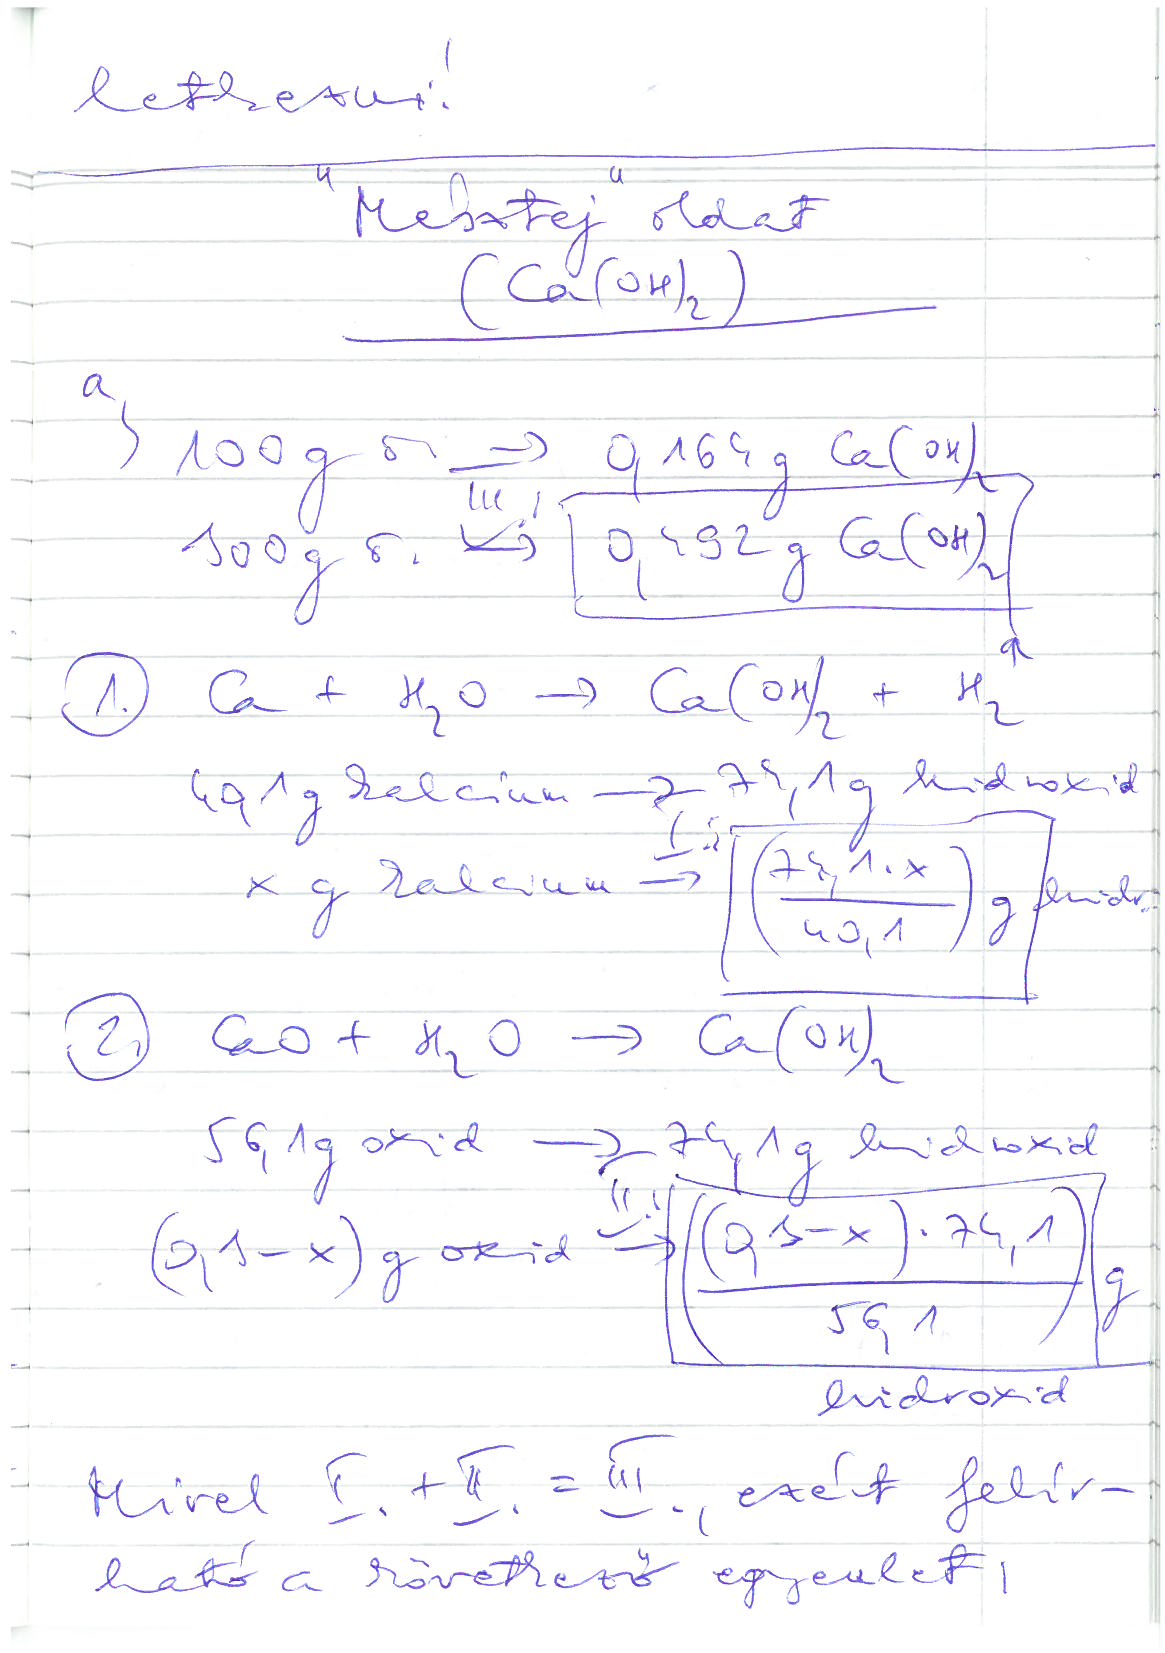 letkezni!
"Mésztej" oldat
(Ca(OH)2)
a,
100g o. → 0,164g Ca(OH)2
300g o. III.; → 0,492g Ca(OH)2
1. Ca + H2O → Ca(OH)2 + H2↑
40,1g kalcium → 74,1g hidroxid
x g kalcium I.; → (74,1·x / 40,1) g hidr.
2. CaO + H2O → Ca(OH)2
56,1g oxid → 74,1g hidroxid
(0,3-x) g oxid II.; → ((0,3-x)·74,1 / 56,1) g
hidroxid
Mivel I. + II. = III., ezért felír-
ható a következő egyenlet;